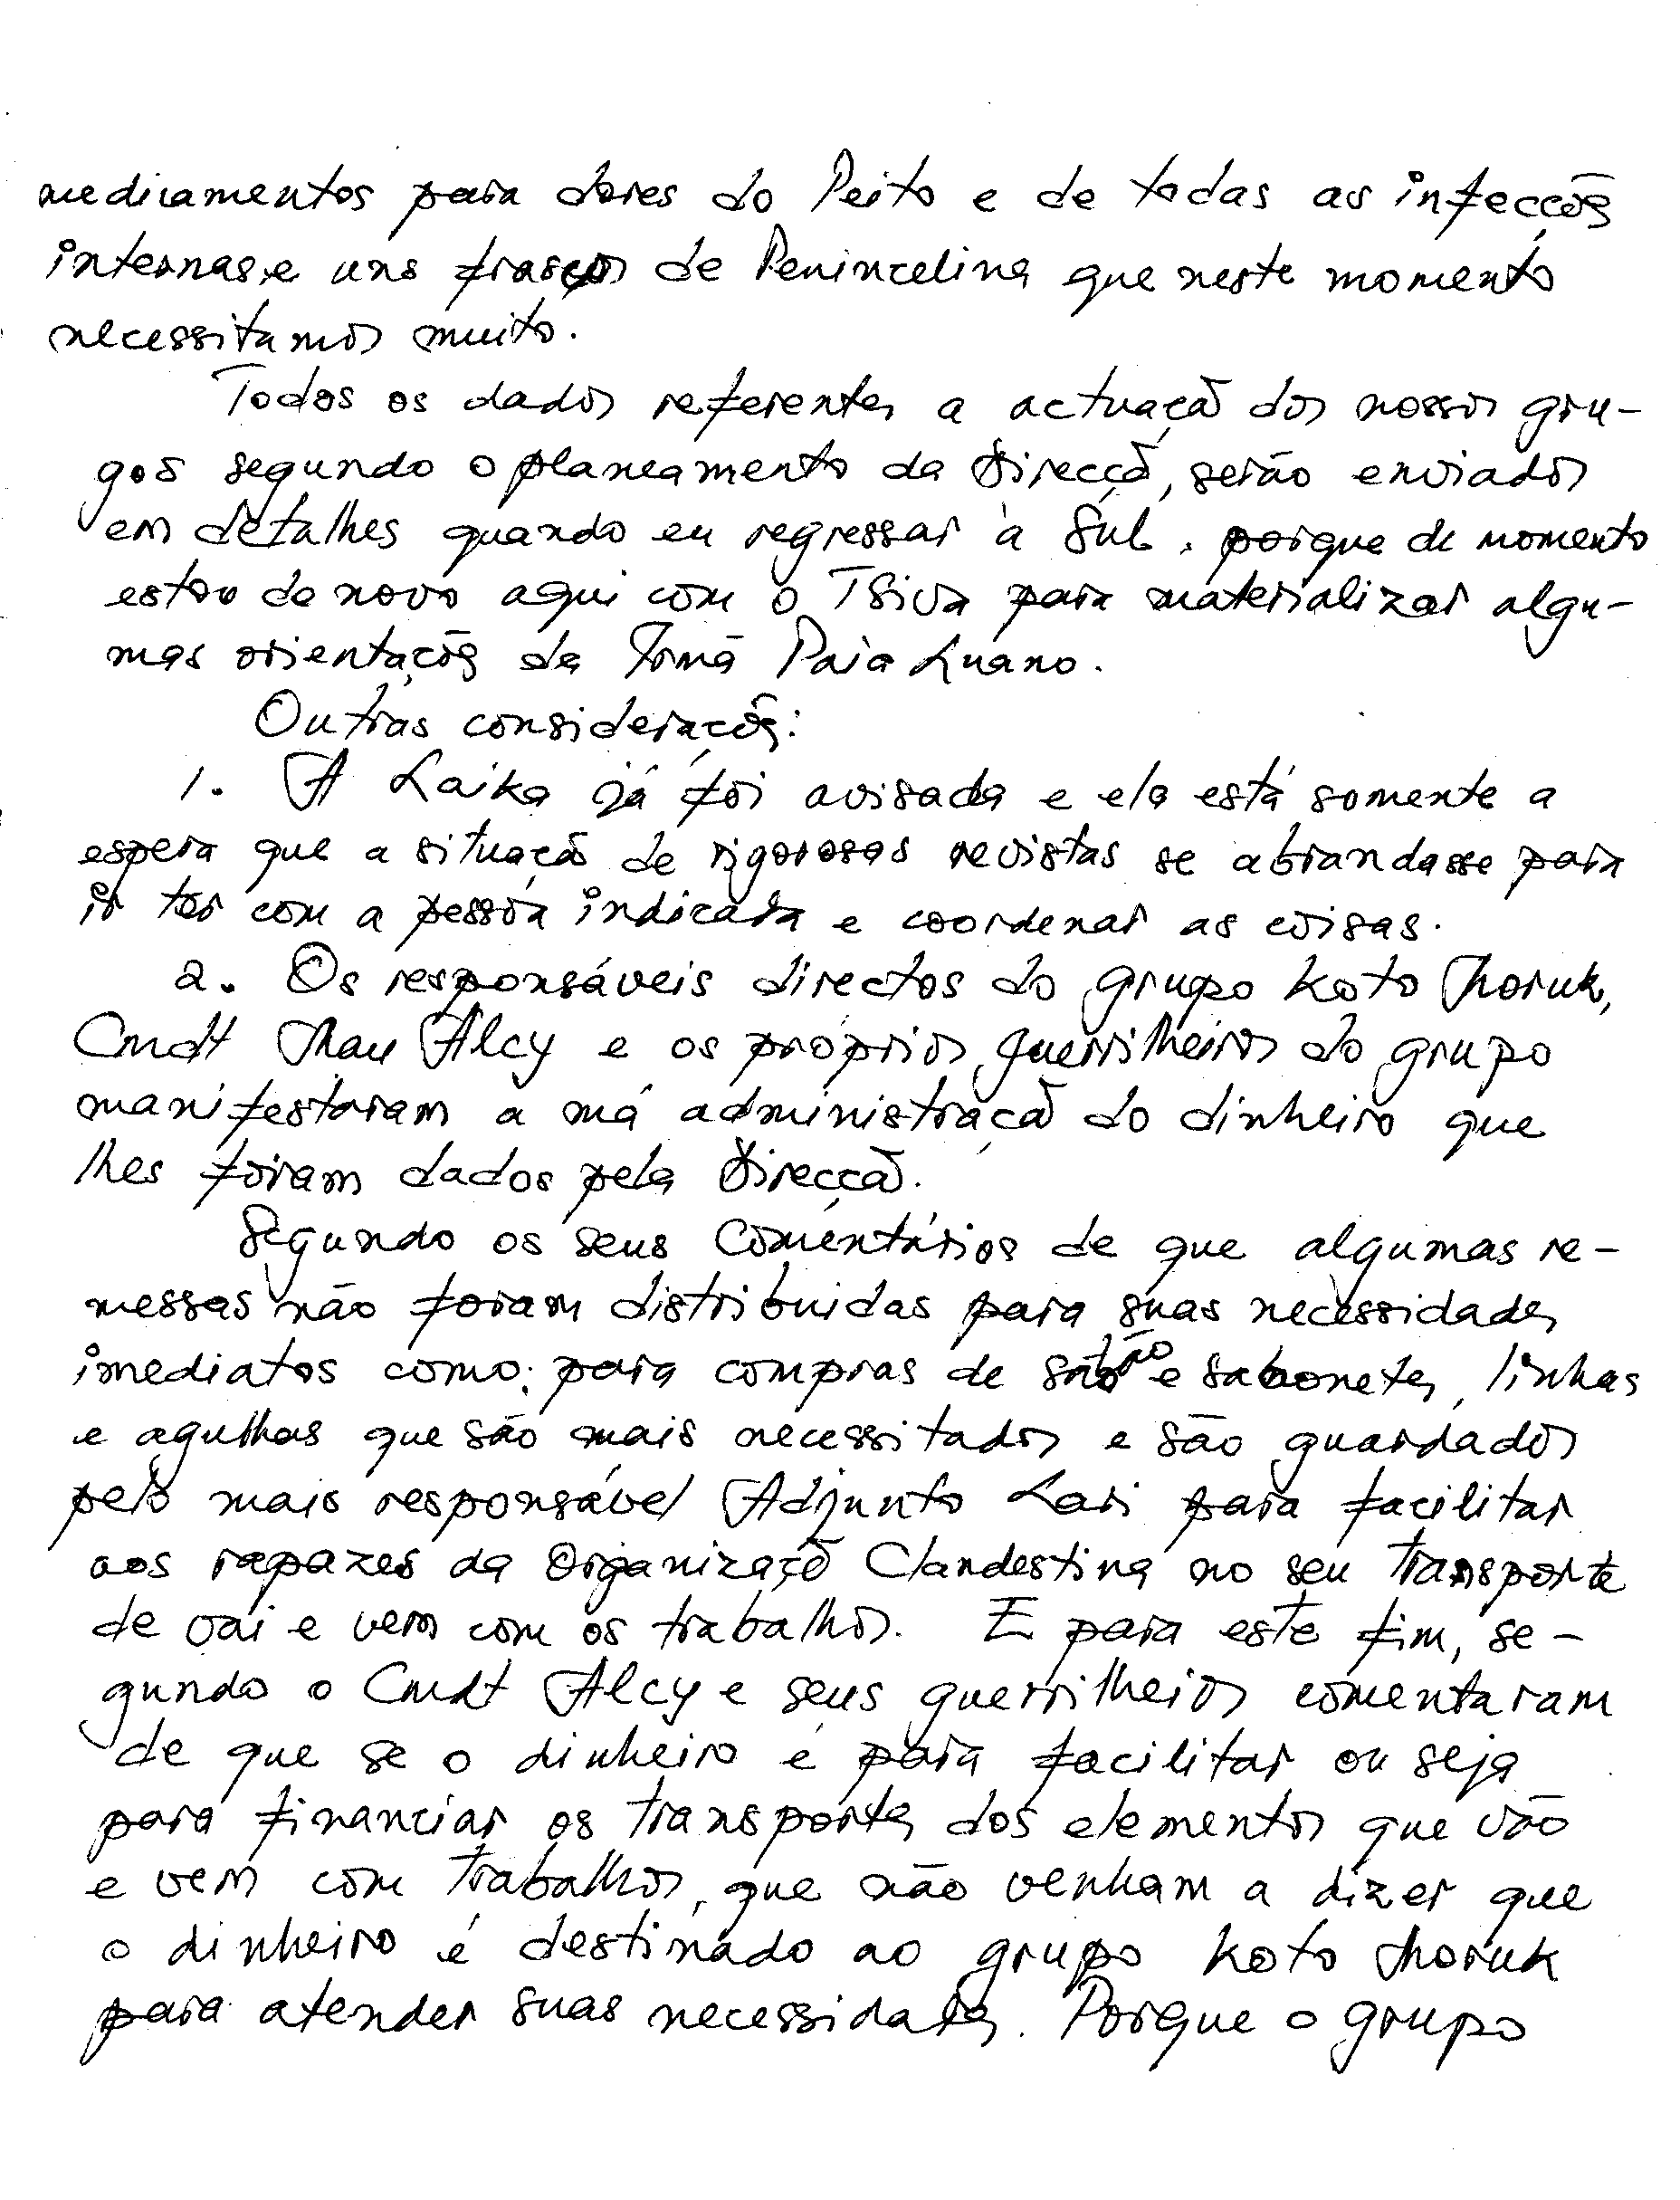 medicamentos para dores do Peito e de todas as infecçõs
internas e uns frascos de Penincelina que neste momento
necessitamos muito.
Todos os dados referentes a actuaçã dos nossos gru-
gos segundo o planeamento da Direcçã, serão enviados
em detalhes quando eu regressar à Sul, porque de momento
estou de novo aqui com o TSiva para materializar algu-
mas orientaçõs de Irmã Paia Luano.
Outras consideraçõs:
1. A Laika já foi avisada e ela está somente a
espera que a situaçã de rigorosas revistas se abrandasse para
ir ter com a pessôa indicada e coordenar as coisas.
2. Os responsáveis directos do grupo Koto Moruk,
Cmdt Mau Alcy e os próprios guerrilheiros do grupo
manifestaram a má administraçã do dinheiro que
lhes foram dados pela Direcçã.
Segundo os seus comentários de que algumas re-
messas não foram distribuidas para suas necessidades
imediatos como: para compras de sabão e sabonetes, linhas
e agulhas que são mais necessitados e são guardados
pelo mais responsável Adjunto Lari para facilitar
aos rapazes da Organizaçõ Clandestina no seu transporte
de vai e vem com os trabalhos. E para este fim, se-
gundo o Cmdt Alcy e seus guerrilheiros comentaram
de que se o dinheiro é para facilitar ou seja
para financiar os transportes dos elementos que vão
e vem com trabalhos, que não venham a dizer que
o dinheiro é destinado ao grupo Koto Moruk
para atender suas necessidades. Porque o grupo